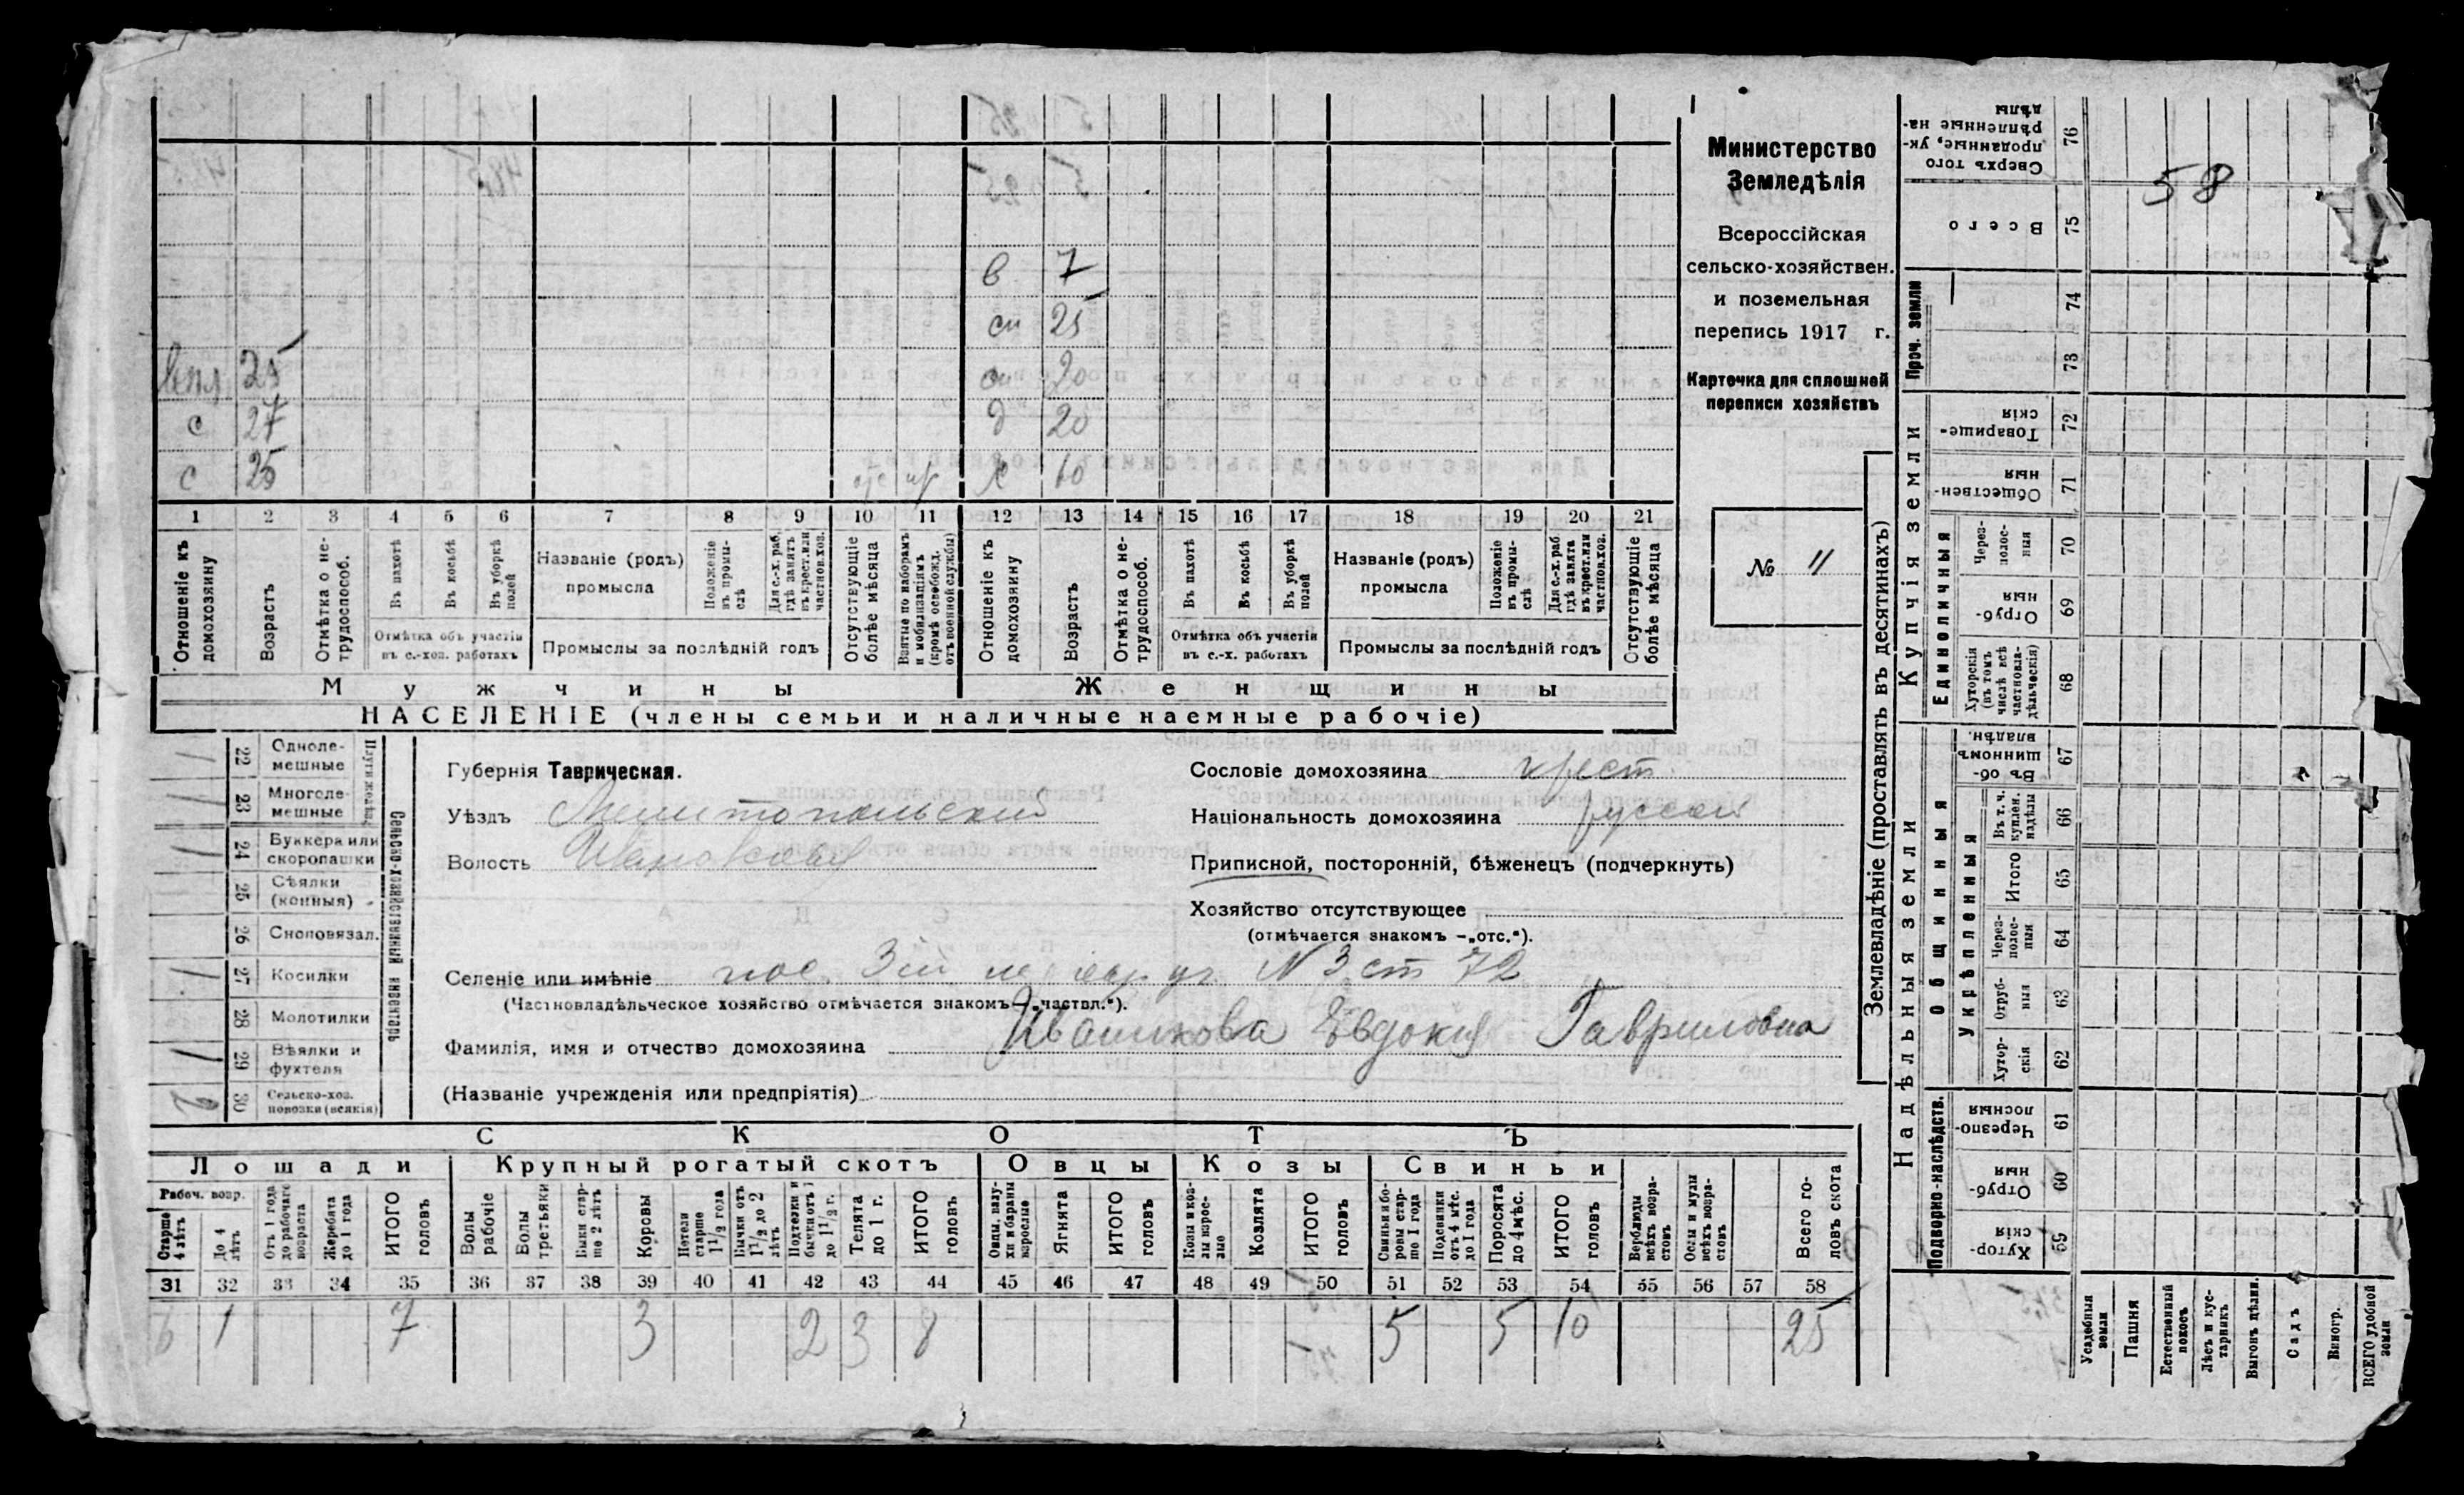 58
Министерство
Земледѣлія
Всероссійская
сельско-хозяйствен.
и поземельная
перепись 1917 г.
Карточка для сплошной
переписи хозяйствъ
№ 11
в 7
сн 25
25 сн 20
с 27 д 20
с 25 х 60
1 2 3 4 5 6 7 8 9 10 11 12 13 14 15 16 17 18 19 20 21
Отношеніе къ домохозяину
Возрастъ
Отмѣтка о нетрудоспособ.
Въ пахотѣ
Въ косьбѣ
Въ уборкѣ полей
Отмѣтка объ участіи
въ с.-хоз. работахъ
Названіе (родъ)
промысла
Положеніе въ промыслѣ
Для с.-х. раб. гдѣ занятъ въ крест. или частнов. хоз.
Промыслы за послѣдній годъ
Отсутствующіе болѣе мѣсяца
Взятые по наборамъ и мобилизаціямъ (кромѣ освобожд. отъ военной службы)
Отношеніе къ домохозяину
Возрастъ
Отмѣтка о нетрудоспособ.
Въ пахотѣ
Въ косьбѣ
Въ уборкѣ полей
Отмѣтка объ участіи
въ с.-х. работахъ
Названіе (родъ)
промысла
Положеніе въ промыслѣ
Для с.-х. раб. гдѣ занята въ крест. или частнов. хоз.
Промыслы за послѣдній годъ
Отсутствующіе болѣе мѣсяца
Мужчины Женщины
НАСЕЛЕНІЕ (члены семьи и наличные наемные рабочіе)
22 Одноле-
мешные
23 Многоле-
мешные
24 Буккера или
скоропашки
25 Сѣялки
(конныя)
26 Сноповязал.
27 Косилки
28 Молотилки
29 Вѣялки и
фухтеля
30 Сельско-хоз.
повозки (всякія)
Сельско-хозяйственный инвентарь
Губернія Таврическая.
Уѣздъ Мелитопольский
Волость Ивановская
Сословіе домохозяина крест.
Національность домохозяина русская
Приписной, посторонній, бѣженецъ (подчеркнуть)
Хозяйство отсутствующее
(отмѣчается знакомъ –„отс.“).
Селеніе или имѣніе пос. 3ій уч. N 3 ст 72
(Частновладѣльческое хозяйство отмѣчается знакомъ–„частвл.“).
Фамилія, имя и отчество домохозяина Ивашкова Евдокия Гавриловна
(Названіе учрежденія или предпріятія)
СКОТЪ
Лошади Крупный рогатый скотъ Овцы Козы Свиньи
Рабоч. возр.
Старше 4 лѣтъ
До 4 лѣтъ
Отъ 1 года до рабочаго возраста
Жеребята до 1 года
ИТОГО головъ
Волы рабочіе
Волы третьяки
Быки старше 2 лѣтъ
Коровы
Нетели старше 1 1/2 года
Бычки отъ 1 1/2 до 2 лѣтъ
Подтелки и бычки отъ 1 до 1 1/2 г.
Телята до 1 г.
ИТОГО головъ
Овцы, валухи и бараны взрослые
Ягнята
ИТОГО головъ
Козы и козлы взрослые
Козлята
ИТОГО головъ
Свиньи и боровы старше 1 года
Подсвинки отъ 4 мѣс. до 1 года
Поросята до 4 мѣс.
ИТОГО головъ
Верблюды всѣхъ возрастовъ
Ослы и мулы всѣхъ возрастовъ
Всего головъ скота
31 32 33 34 35 36 37 38 39 40 41 42 43 44 45 46 47 48 49 50 51 52 53 54 55 56 57 58
6 1 7 3 2 3 8 5 5 10 25
Землевладѣніе (проставлять въ десятинахъ)
Надѣльныя земли
Купчія земли
Проч. земли
Подворно-наслѣдств.
Общинныя
Укрѣпленныя
Единоличныя
Сверхъ того проданные, укрѣпленные надѣлы 76
Всего 75
74
73
Товарищескія 72
Общественныя 71
Черезполосныя 70
Отрубныя 69
Хуторскія (въ томъ числѣ всѣ частновладѣльческія) 68
Въ общинномъ владѣн. 67
Въ т. ч. куплен. надѣлы 66
Итого 65
Черезполосныя 64
Отрубныя 63
Хуторскія 62
Черезполосныя 61
Отрубныя 60
Хуторскія 59
Усадебныя земли
Пашня
Естественный покосъ
Лѣсъ и кустарникъ
Выгонъ дѣлин.
Садъ
Виногр.
ВСЕГО удобной земли